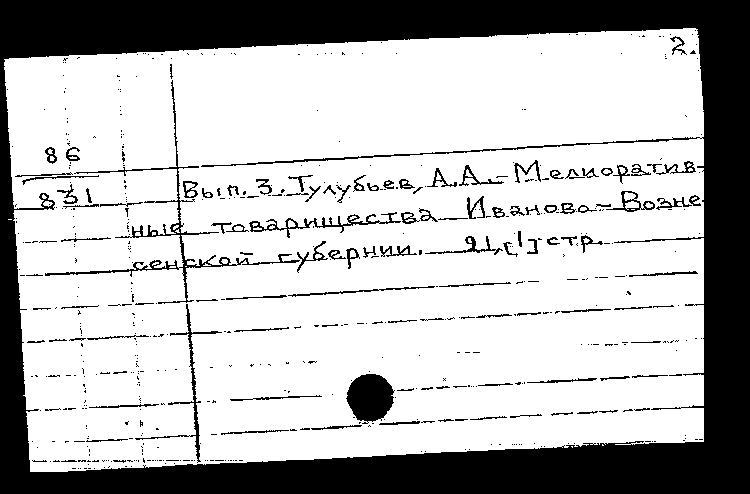 2.
86
831
Вып. 3. Тулубьев, А.А. - Мелиоратив-
ные товарищества Иваново-Возне
сенской губернии. 21, [1] стр.